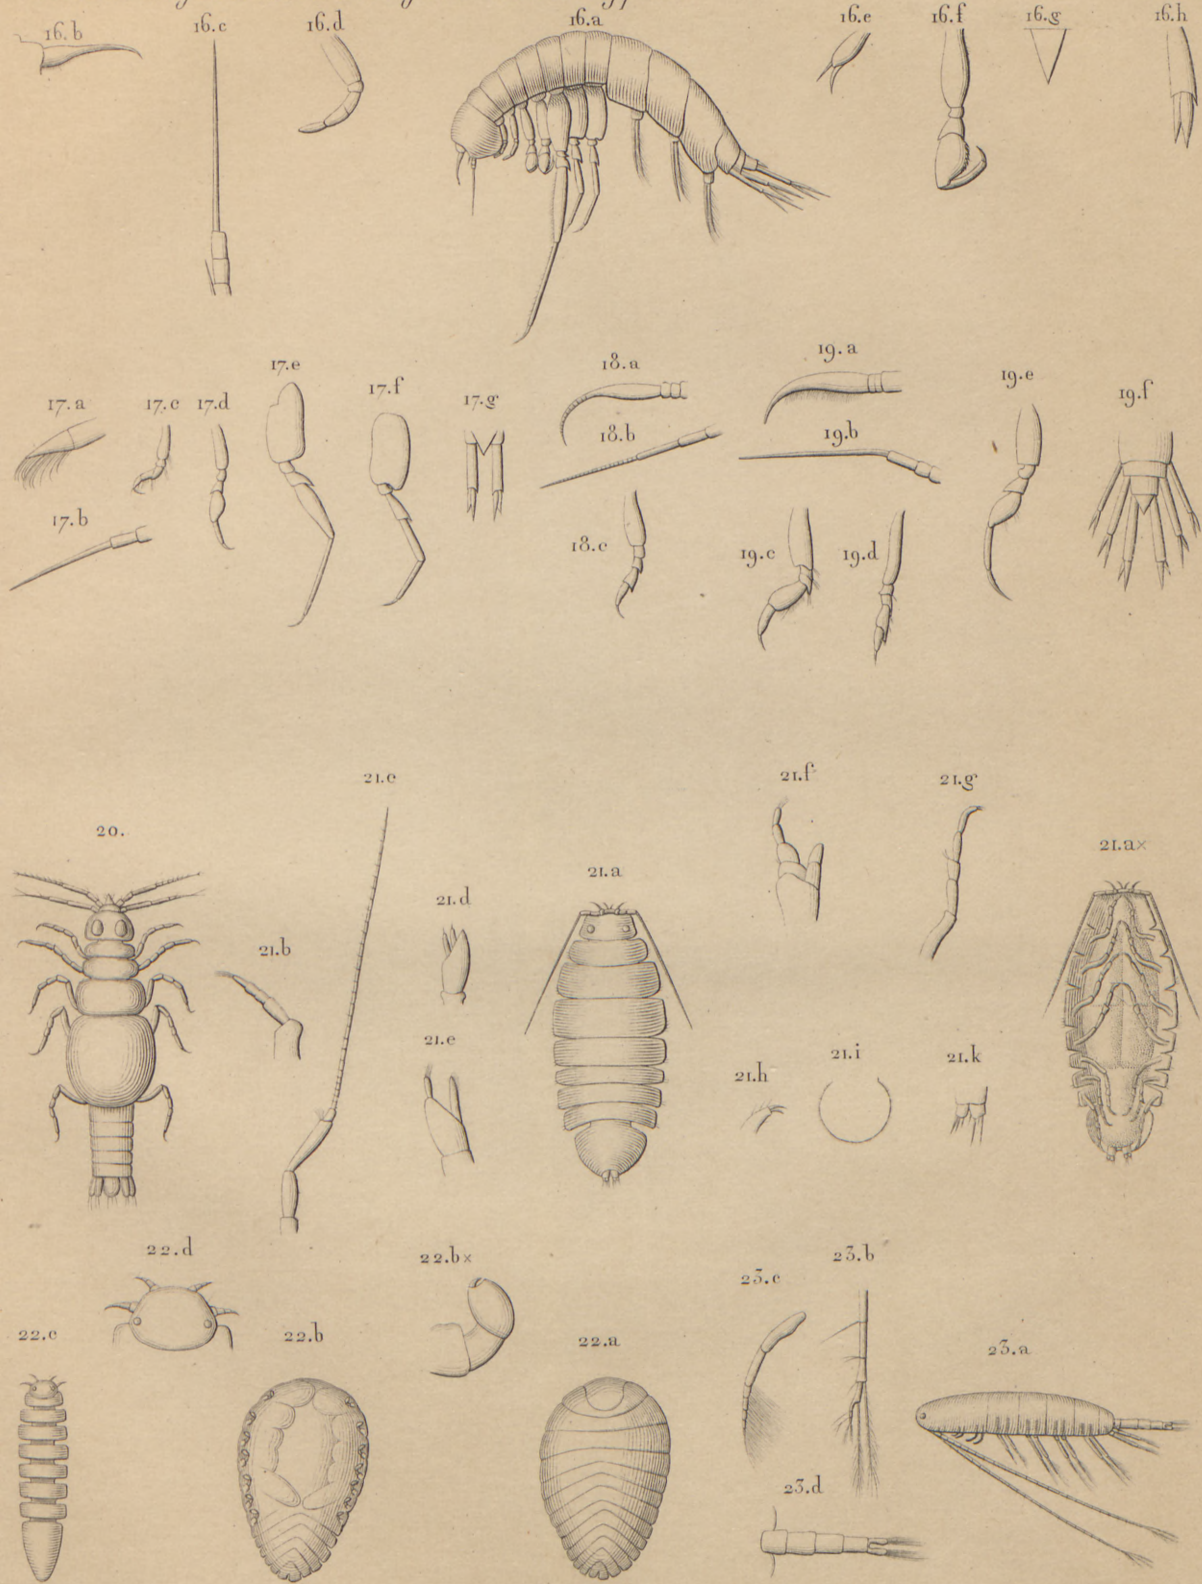 16.b
16.c
16.d
16.a
16.e
16.f
16.g
16.h
17.a
17.c
17.d
17.e
17.f
17.g
18.a
19.a
19.e
19.f
17.b
18.b
19.b
18.c
19.c
19.d
20.
21.c
21.f
21.g
21.b
21.d
21.a
21.a×
21.e
21.h
21.i
21.k
22.d
22.b×
23.c
23.b
22.c
22.b
22.a
23.a
23.d